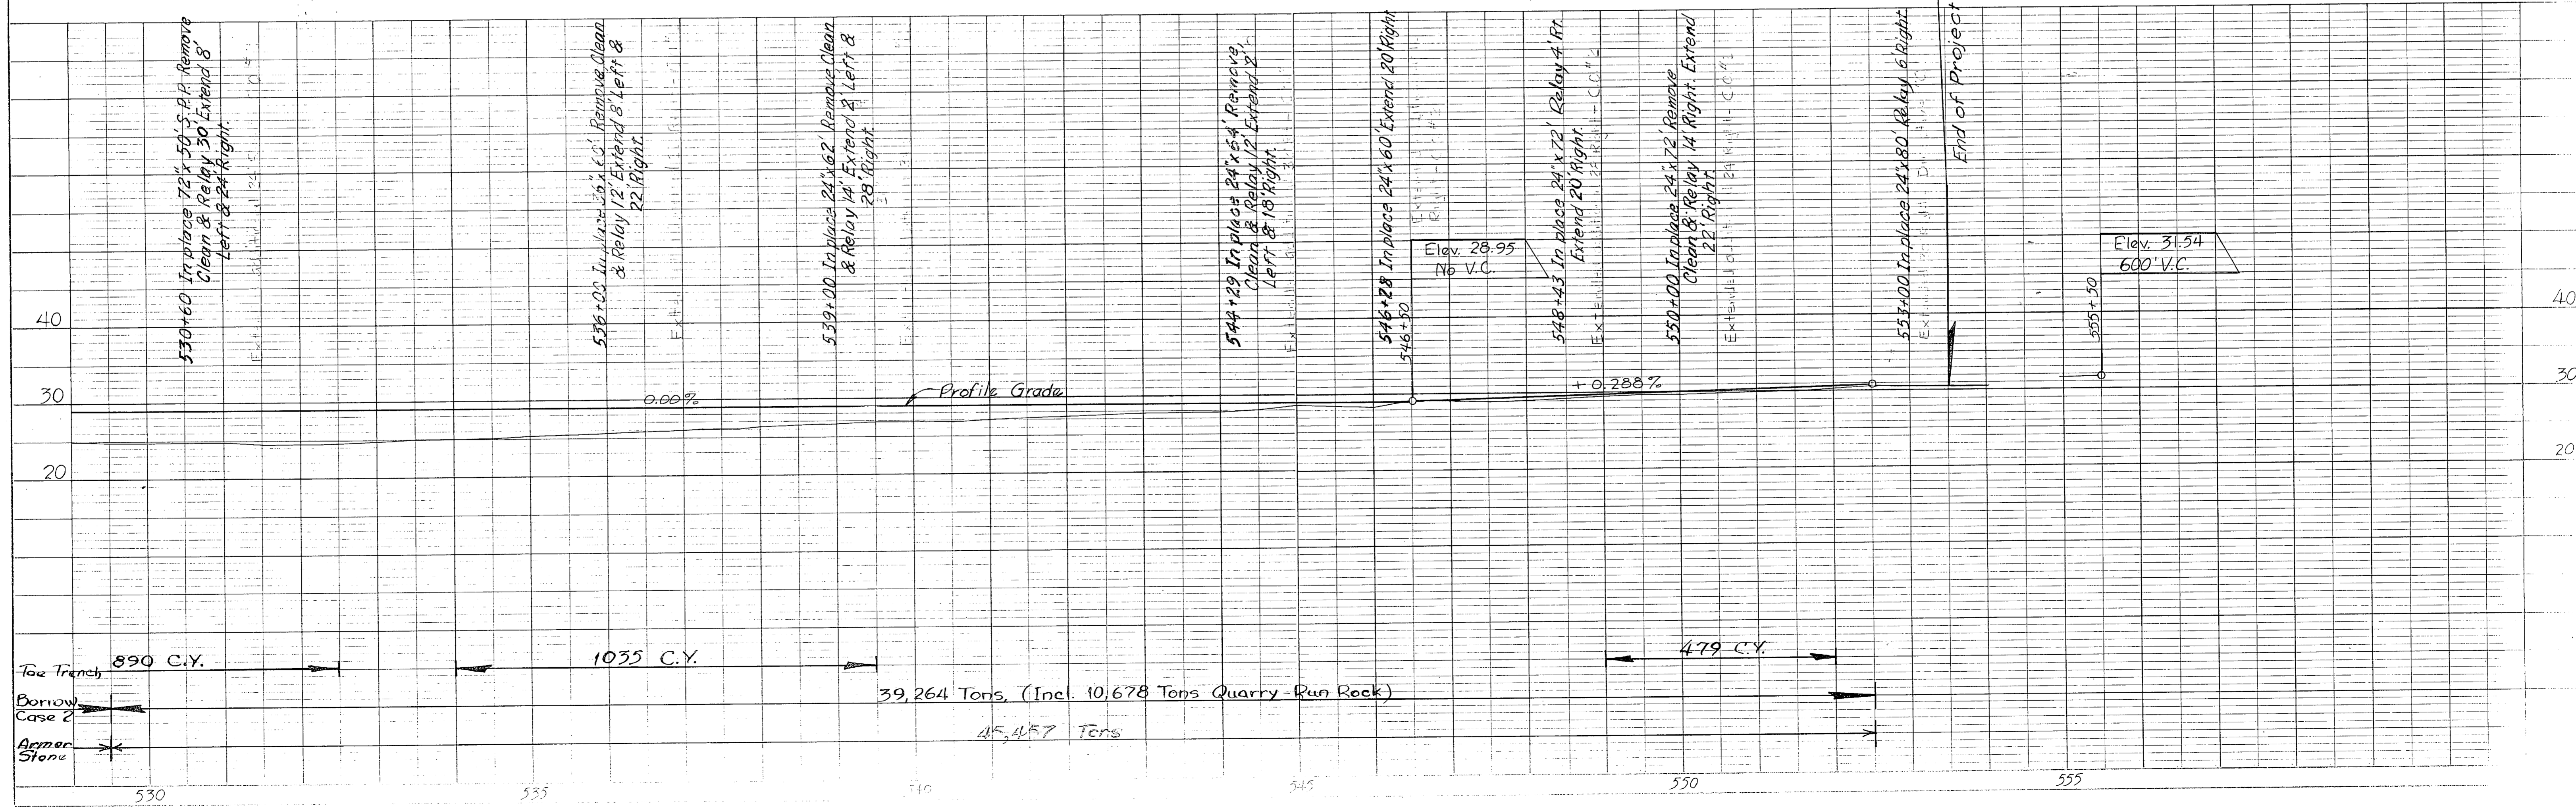 530+60 In place 72"x 50' S.P.P. Remove
Clean & Relay 30' Extend 8'
Left & 24' Right.
536+00 In place 36"x 65' Remove, Clean
& Relay 12' Extend 8' Left &
22' Right.
539+00 In place 24"x62' Remove Clean
& Relay 14' Extend 2' Left &
28' Right
544+29 In place 24"x64' Remove,
Clean & Relay 12' Extend 2'
Left & 18' Right.
546+28 In place 24"x60' Extend 20' Right
546+50
Elev. 28.95
No V.C.
548+43 In place 24"x72' Relay 4' Rt.
Extend 20' Right.
550+00 In place 24"x72' Remove
Clean & Relay 14' Right. Extend
22' Right.
553+00 In place 24"x80' Relay 6' Right
End of Project
Elev. 31.54
600' V.C.
555+50
40
40
30
0.00%
Profile Grade
+0.288%
30
20
20
Toe Trench
890 C.Y.
1035 C.Y.
479 C.Y.
Borrow
Case 2
39,264 Tons, (Incl. 10,678 Tons Quarry-Run Rock)
Armor
Stone
45,457 Tons
530
535
540
545
550
555